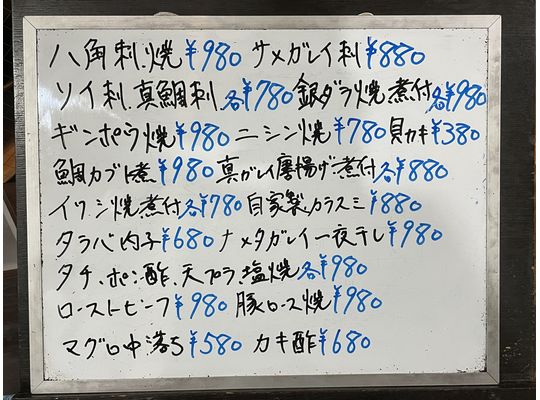 八角刺.焼¥980 サメガレイ刺¥880
ソイ刺.真鯛刺各¥780 銀ダラ焼.煮付各¥980
ギンポウ焼¥980 ニシン焼¥780 貝カキ¥380
鯛カブト煮¥980 真ガレイ唐揚げ.煮付各¥880
イワシ焼.煮付各¥780 自家製カラスミ¥880
タラバ内子¥680 ナメタガレイ一夜干し¥980
タチ.ポン酢.天プラ.塩焼各¥980
ローストビーフ¥980 豚ロース焼¥980
マグロ中落ち¥580 カキ酢¥680